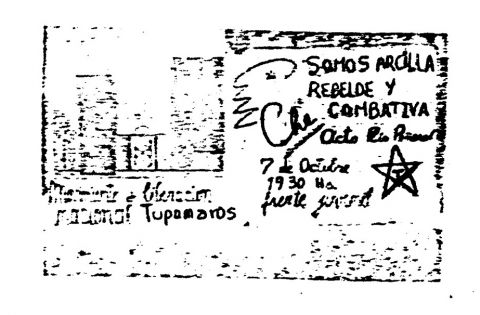 SOMOS ARCILLA
REBELDE Y
COMBATIVA
Che
Acto
7 de Octubre
19 30 Hs.
frente juvenil
T
Movimiento de liberación
nacional Tupamaros